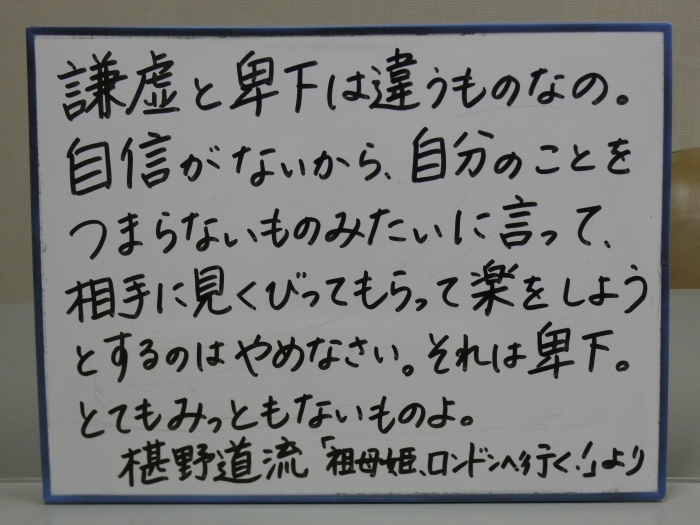 謙虚と卑下は違うものなの。
自信がないから、自分のことを
つまらないものみたいに言って、
相手に見くびってもらって楽をしよう
とするのはやめなさい。それは卑下。
とてもみっともないものよ。
椹野道流「祖母姫、ロンドンへ行く!」より